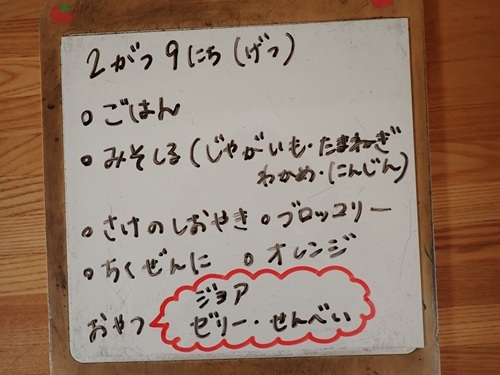 2がつ9にち(げつ)
・ごはん
・みそしる(じゃがいも・たまねぎ
わかめ・にんじん)
・さけのしおやき ・ブロッコリー
・ちくぜんに ・オレンジ
ジョア
おやつ ゼリー・せんべい